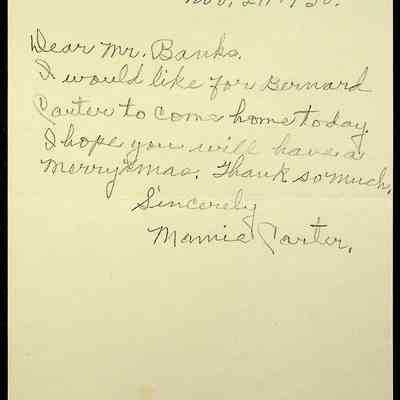 Dear Mr. Banks.
I would like for Bernard
Carter to come home today.
I hope you will have a
Merry Xmas. Thank so much.
Sincerely
Mamie Carter.